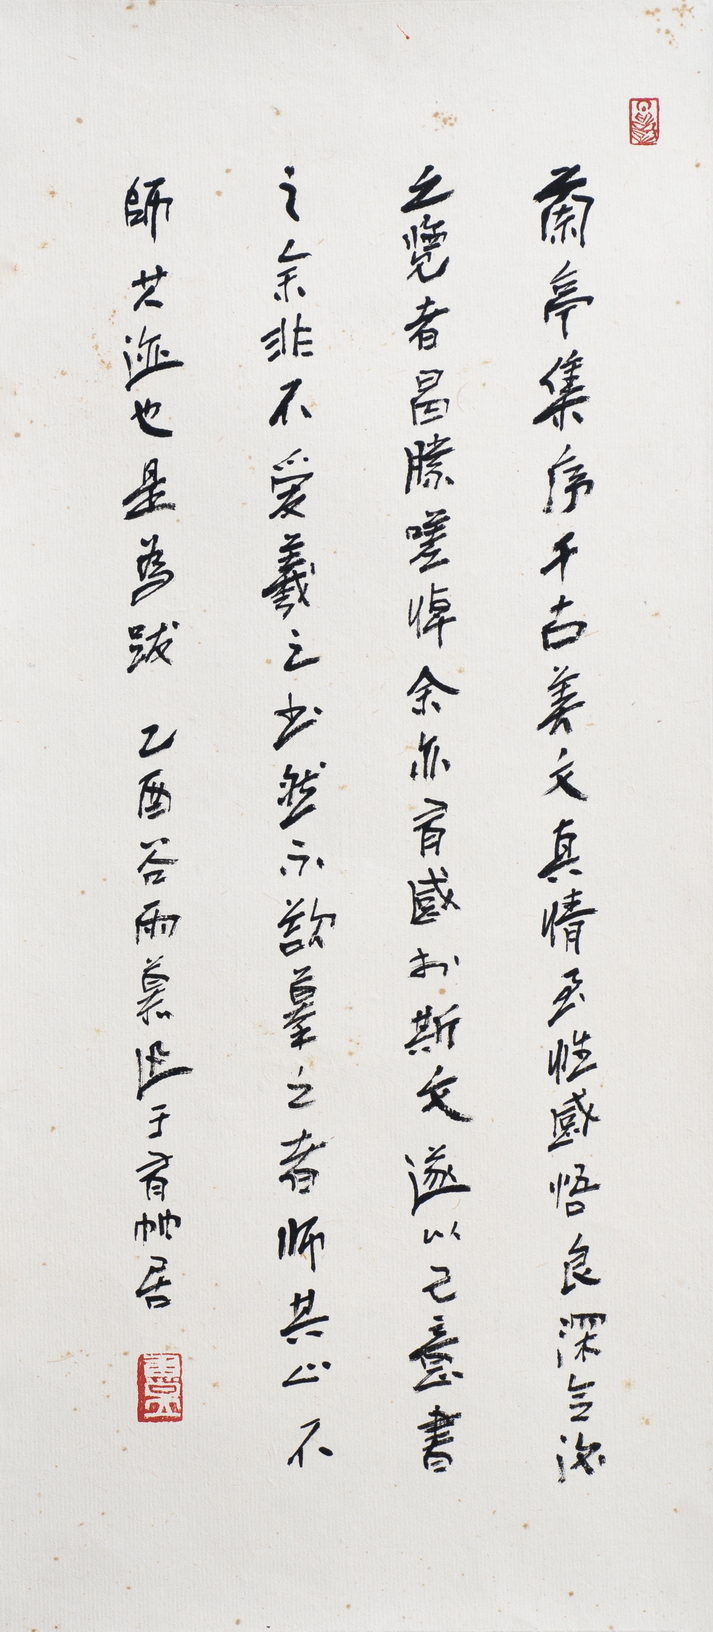 蘭亭集序千古美文真情至性感悟良深令後
之覽者曷勝嗟悼余亦有感於斯文遂以己意書
之余非不愛羲之書然不欲摹之者師其心不
師其迹也是為跋 乙酉谷雨慕迅于有怞居